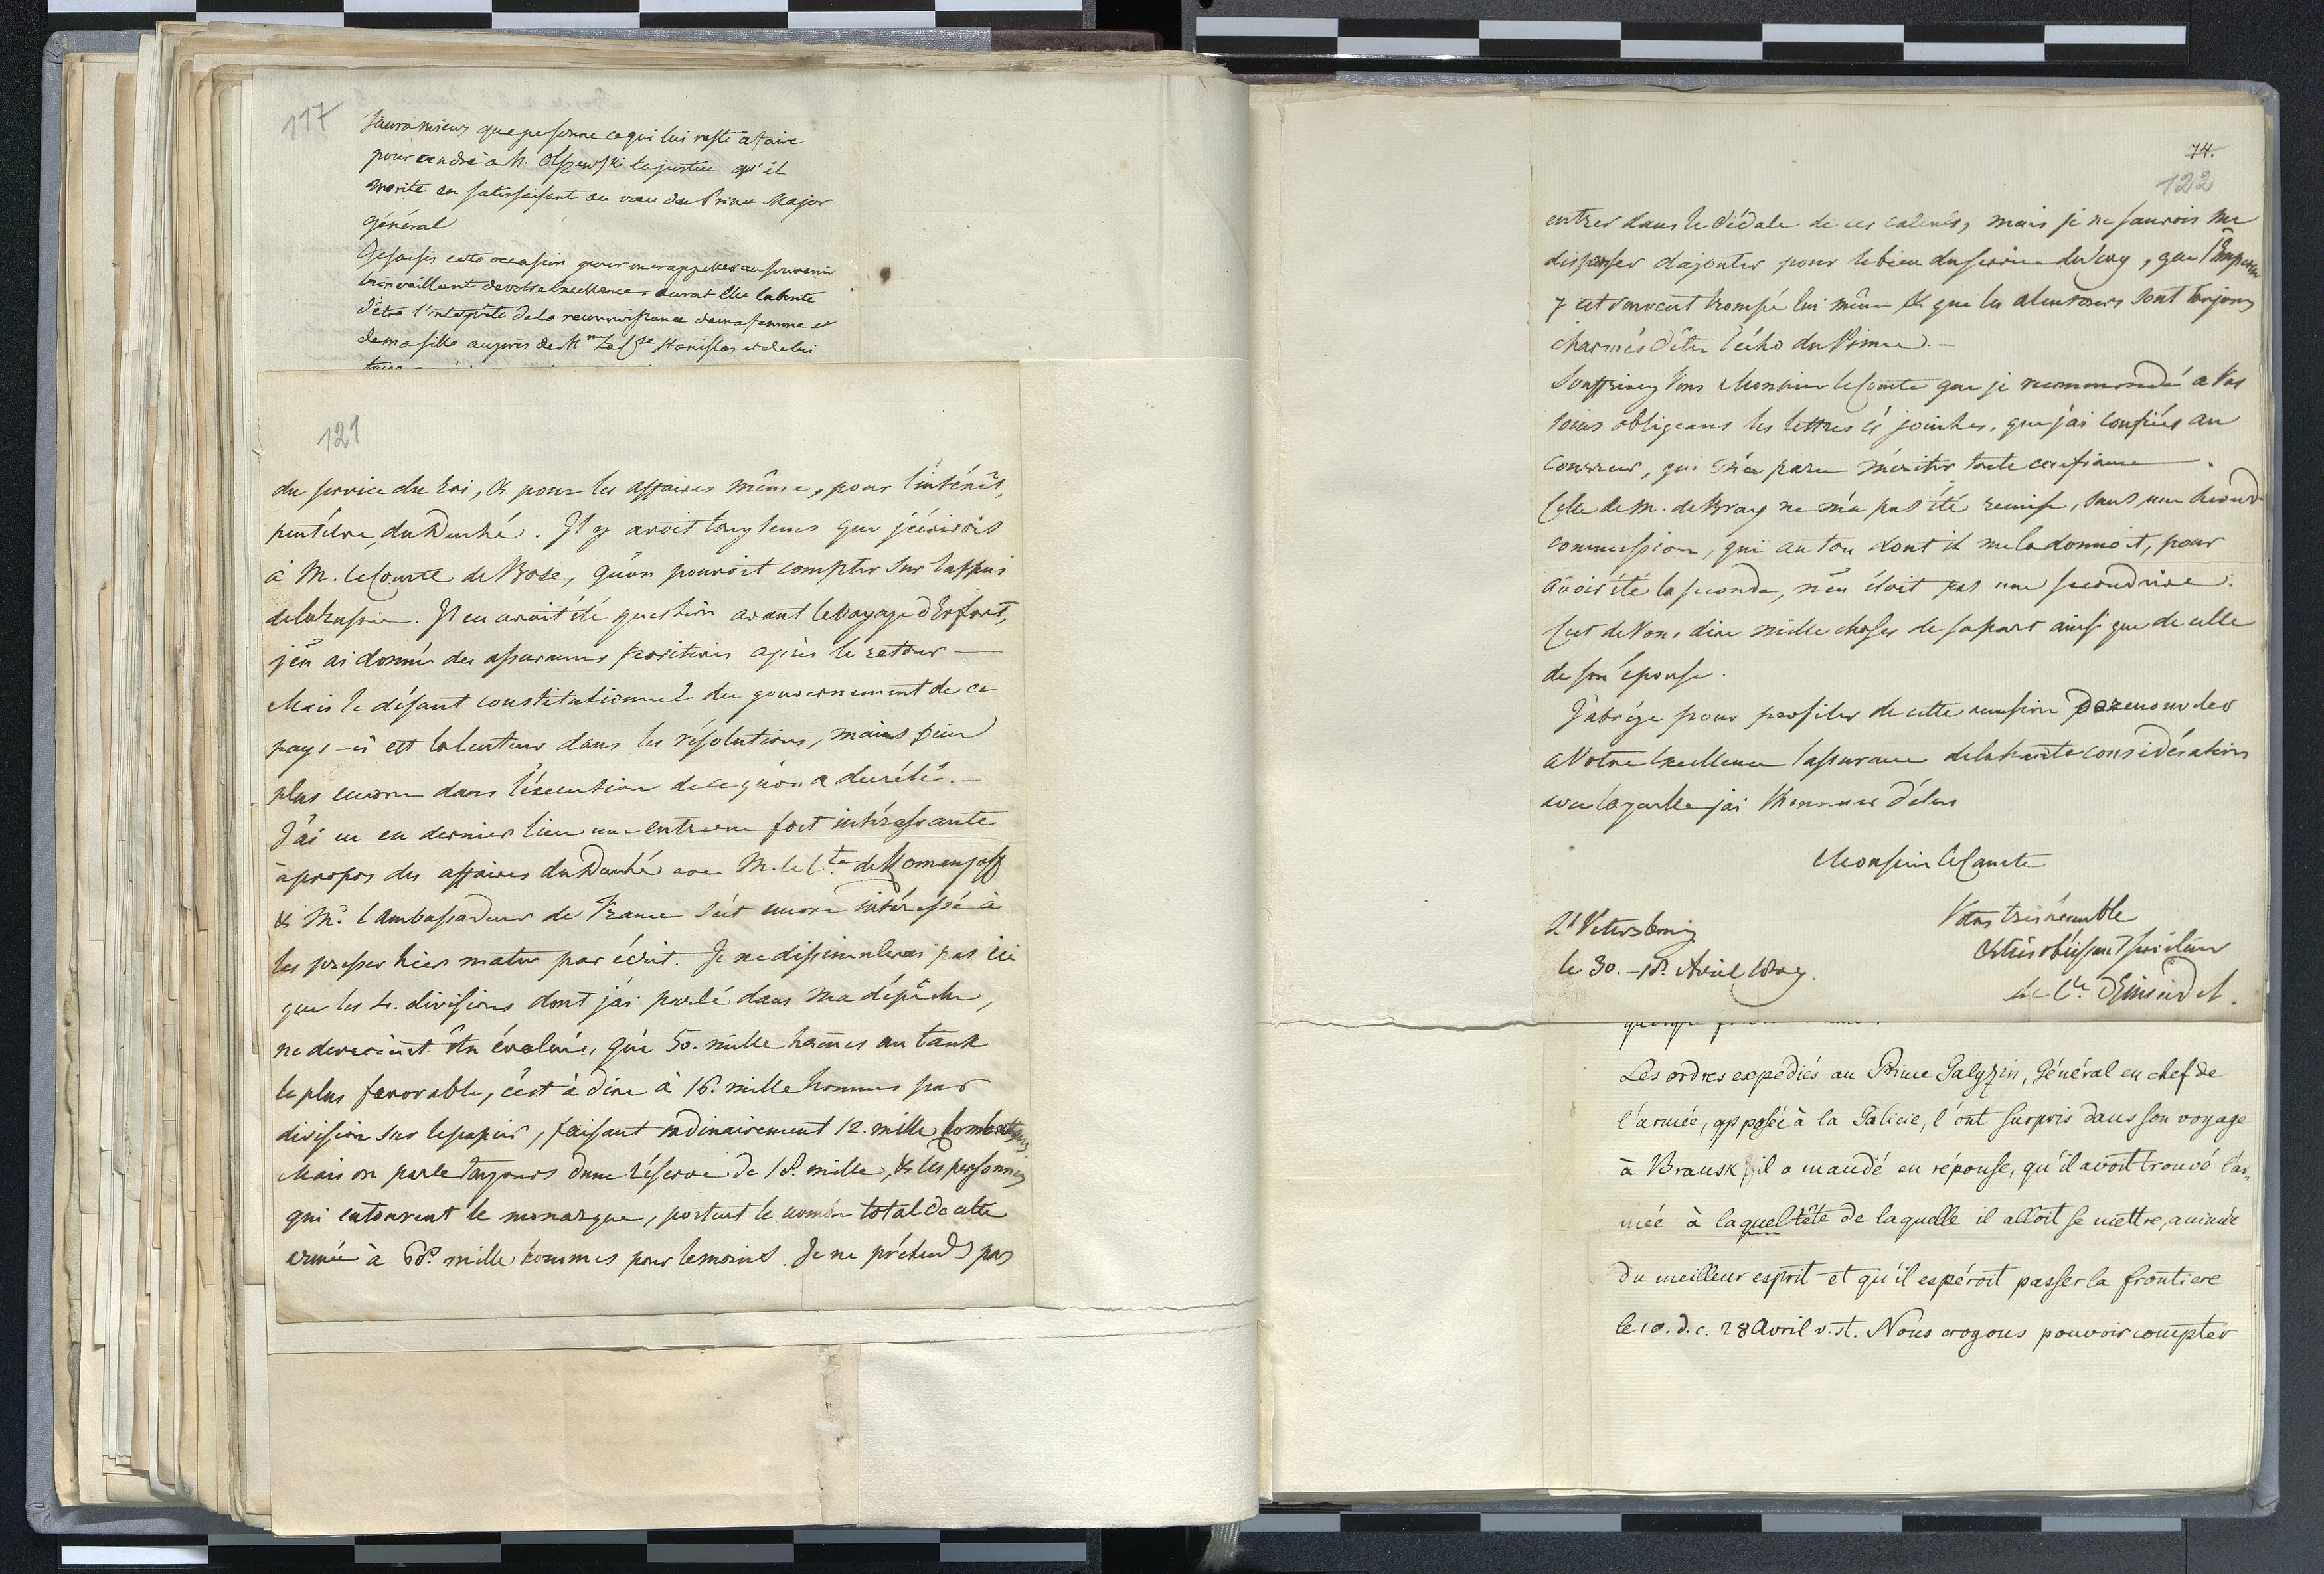 117
saura mieux que personne ce qui lui reste à faire
pour rendre à M. Olszewski la justice qu'il
merite en satisfaisant au vœu du Prince Major
général
Je saisis cette occasion pour me rappeller au souvenir
bienveillant de votre excellence. aurat Elle la bonté
d'être l'interprête de la reconnoissance de ma femme et
de ma fille auprès de Mme la Csse Stanislas et de lui
121
du service du Roi, & pour les affaires même, pour l'intérêt,
peutêtre, du Duché. Il y avoit longtems que j'écrivois
à M. le Comte de Bose, qu'on pouvoit compter sur l'appui
de la Russie. Il en avoit été question avant le voyage d'Erfort,
j'en ai donné des assurances positives après le retour —
Mais le défaut constitutionnel du gouvernement de ce
pays-ci est la lenteur dans les résolutions, mais bien
plus encore dans l'éxecution de ce qu'on a decrété. —
J'ai eu en dernier lieu une entrevue fort intéressante
àpropos des affaires du Duché avec M. le Cte de Romanzoff
& Mr. l'Ambassadeur de France s'est encore intéressé à
les presser hier matin par écrit. Je ne dissimulerai pas ici
que les 4. divisions dont j'ai parlé dans ma dépêche,
ne devroient être évaluées, qu'à 50. mille hommes au taux
le plus favorable, c'est à dire à 16. mille hommes par
division sur le papier, faisant ordinairement 12. mille combattans.
Mais on parle toujours d'une réserve de 18. mille, & les personnes
qui entourent le monarque, portent le nombre total de cette
armée à 60. mille hommes pour le moins. Je ne prétends pas
74.
122
entrer dans le dédale de ces calculs, mais je ne saurois me
dispenser d'ajouter pour le bien du service du Roy, que l'Empereur
y est souvent trompé lui même & que les alentours sont toujours
charmés d'être l'écho du Prince. —
Souffrirez Vous Monsieur le Comte que je recommande à Vos
soins obligeans les lettres ci jointes, que j'ai confiées au
courrier, qui m'a paru mériter toute confiance.
Celle de M. de Bray ne m'a pas été remise, sans une seconde
commission, qui au ton dont il me la donnoit, pour
avoir été la seconde, n'en étoit pas une secondaire.
C'est de Vous dire mille choses de sa part ainsi que de celle
de son épouse.
J'abrége pour profiter de cette occasion de renouveler
à Votre Excellence l'assurance de la haute considération
avec laquelle j'ai l'honneur d'être
Monsieur le Comte
Votre très humble
& très obéissant Serviteur
le Cte. d'Einsiedel.
St. Petersbourg
le 30.-18. Avril 1809.
Les ordres expédiés au Prince Galyzin, Général en chef de
l'armée, opposée à la Galicie, l'ont surpris dans son voyage
à Bransk, il a mandé en réponse, qu'il avoit trouvé l'ar-
mée à la tête de laquelle il alloit se mettre, animée
du meilleur esprit et qu'il espéroit passer la frontiere
le 10. d.c. 28 Avril v. st. Nous croyons pouvoir compter